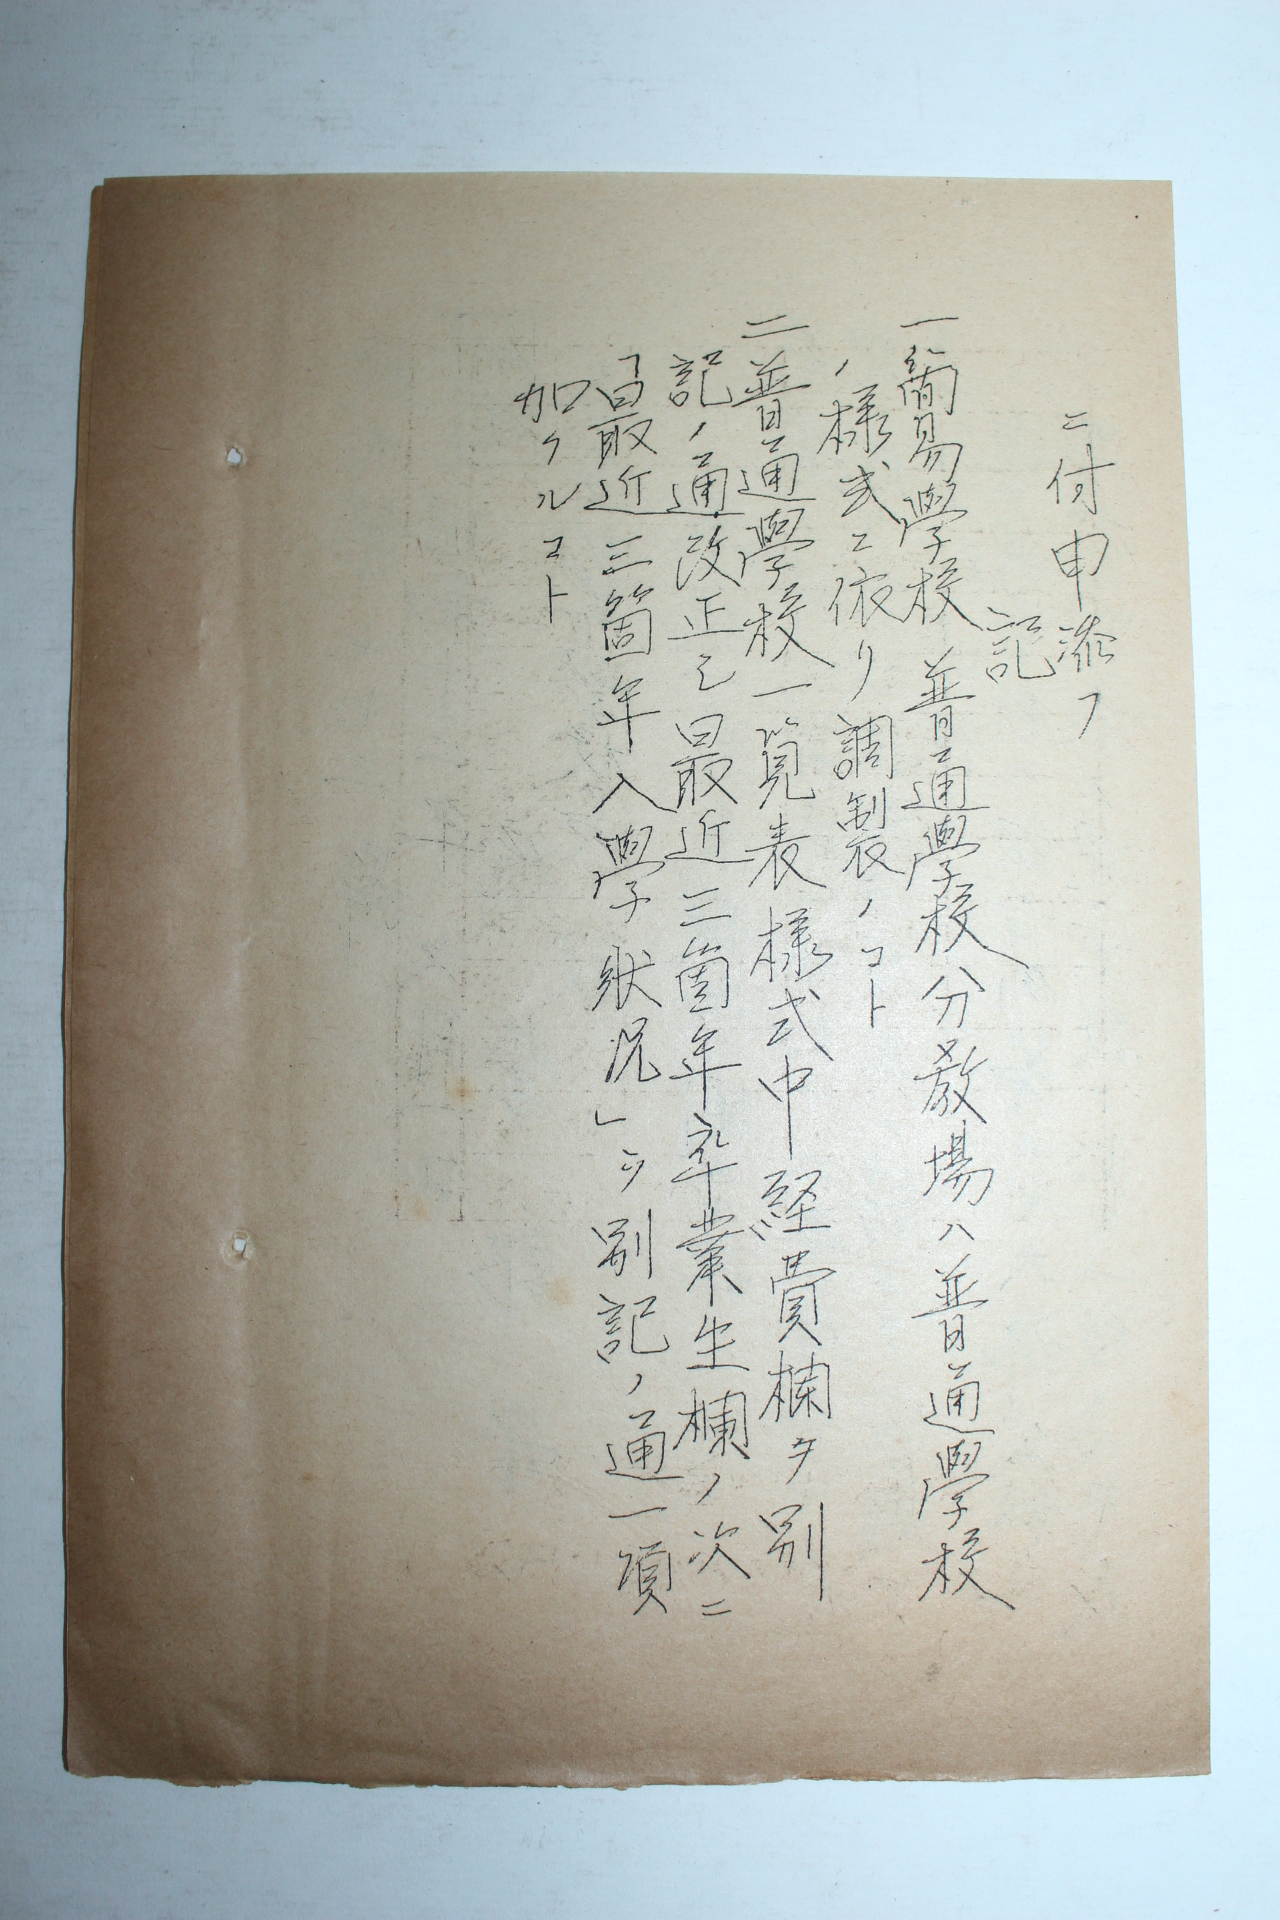 ニ付申添フ
記
一簡易學校普通學校分教場ハ普通學校
ノ様式ニ依リ調製ノコト
二普通學校一覧表様式中経費欄ヲ別
記ノ通改正シ最近三箇年卒業生欄ノ次ニ
「最近三箇年入學狀況」ヲ別記ノ通一項
加フルコト